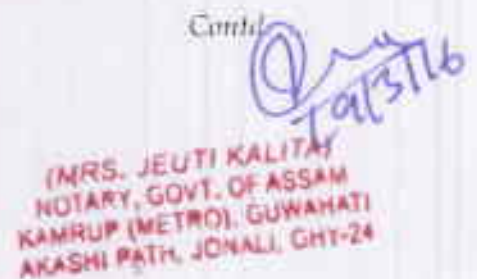 Contd
19/3/16
(MRS. JEUTI KALITA)
NOTARY, GOVT. OF ASSAM
KAMRUP (METRO), GUWAHATI
AKASHI PATH, JONALI, GHY-24